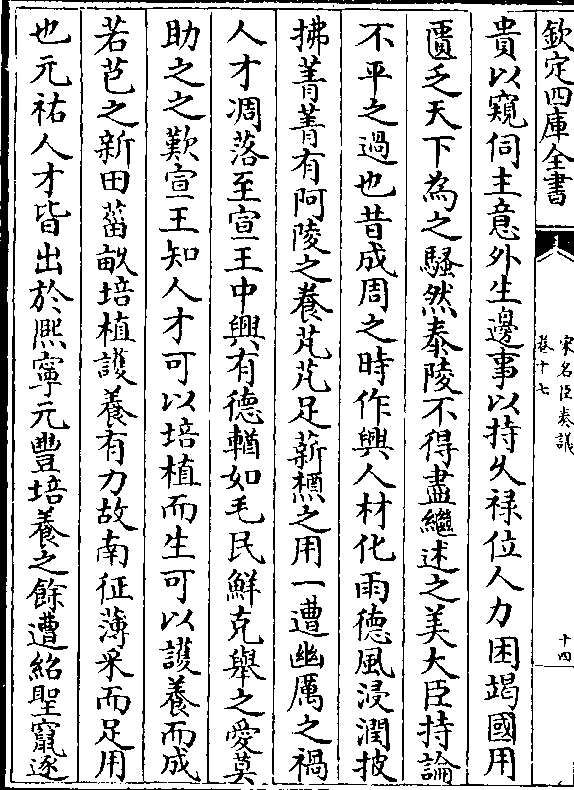 欽定四庫全書
宋名臣奏議
卷十七
十四
貴以窺伺主意外生邊事以持久禄位人力困竭國用
匱乏天下為之騷然泰陵不得盡繼述之美大臣持論
不平之過也昔成周之時作興人材化雨德風浸潤披
拂菁菁有阿陵之養芃芃足薪槱之用一遭幽厲之禍
人才凋落至宣王中興有德輶如毛民鮮克舉之愛莫
助之之歎宣王知人才可以培植而生可以護養而成
若芑之新田菑畝培植護養有力故南征薄采而足用
也元祐人才皆出於熈寧元豐培養之餘遭紹聖竄逐